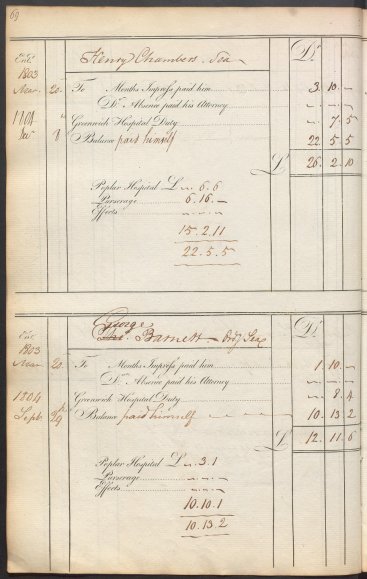 69
Ent.
1803
Henry Chambers. Sea
Dr.
Mar. 20. To Months Imprest paid him 3. 10. –
Do. Absence paid his Attorney – – –
1804 Greenwich Hospital Duty – 7. 5
8 Balance paid himself 22. 5. 5
£ 26. 2. 10
Poplar Hospital £ – 6. 6
Purserage 6. 16. –
Effects – – –
15. 2. 11
22. 5. 5
George
Ent.
1803
Barnett – Ordy Sea
Dr.
Mar. 20. To Months Imprest paid him 1. 10. –
Do. Absence paid his Attorney – – –
1804 Greenwich Hospital Duty – 8. 4
Sept. 29 Balance paid himself – – – – 10. 13. 2
£ 12. 11. 6
Poplar Hospital £ – 3. 1
Purserage – – –
Effects – – –
10. 10. 1
10. 13. 2